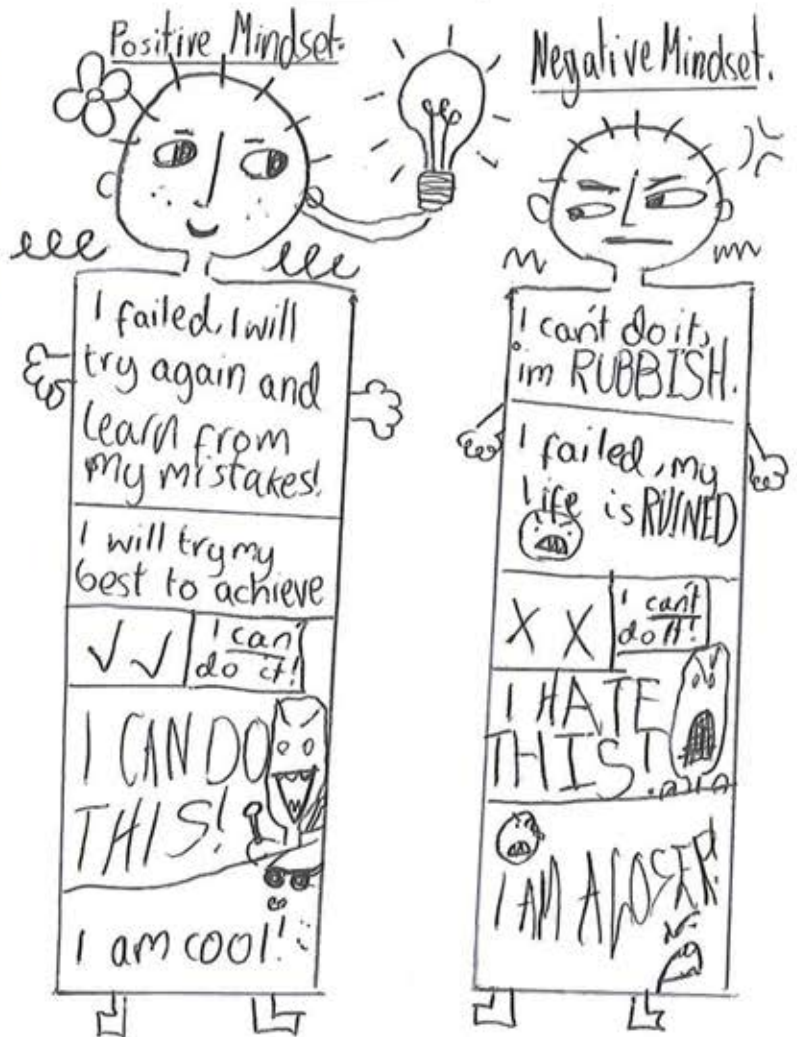 Positive Mindset.
I failed, I will
try again and
learn from
my mistakes!
I will try my
best to achieve
I can
do it!
I CAN DO
THIS!
I am cool!
Negative Mindset.
I can't do it,
im RUBBISH.
I failed, my
life is RUINED
X X
I can't
do it!
I HATE
THIS!
I AM A LOSER!